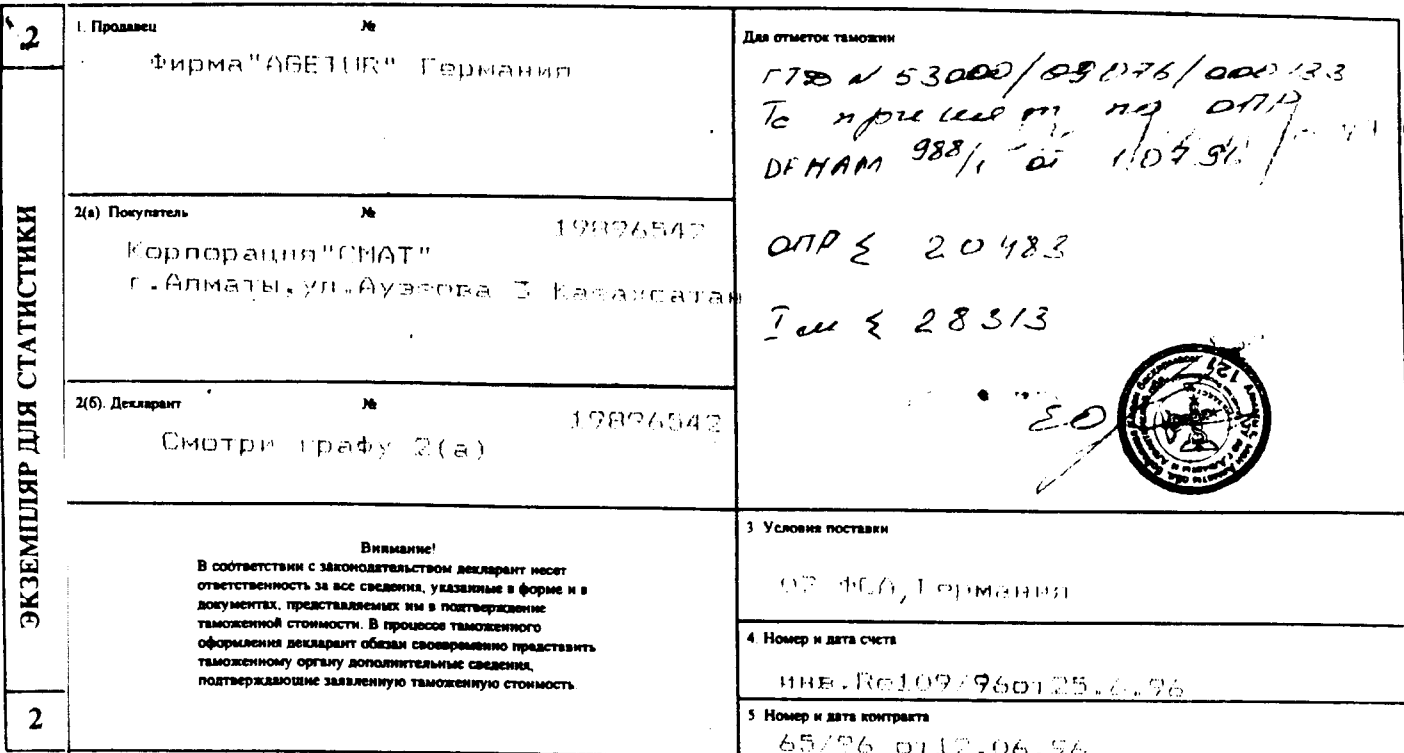 2
ЭКЗЕМПЛЯР ДЛЯ СТАТИСТИКИ
2
1. Продавец №
Фирма"AGETUR" Германия
2(а) Покупатель №
19896542
Корпорация"СМАТ"
г.Алматы,ул.Ауэзова 3 Казахсатан
2(б). Декларант №
19896542
Смотри графу 2(а)
Внимание!
В соответствии с законодательством декларант несет
ответственность за все сведения, указанные в форме и в
документах, представляемых им в подтверждение
таможенной стоимости. В процессе таможенного
оформления декларант обязан своевременно представить
таможенному органу дополнительные сведения,
подтверждающие заявленную таможенную стоимость
Для отметок таможни
ГТД N 53000/09076/000133
Тс примет по ОПР
988/1 от
ОПР 20483
28313
3 Условия поставки
02 ФСА,Германия
4. Номер и дата счета
инв.Re109/96от25.6.96
5 Номер и дата контракта
65/96 от12.06.96